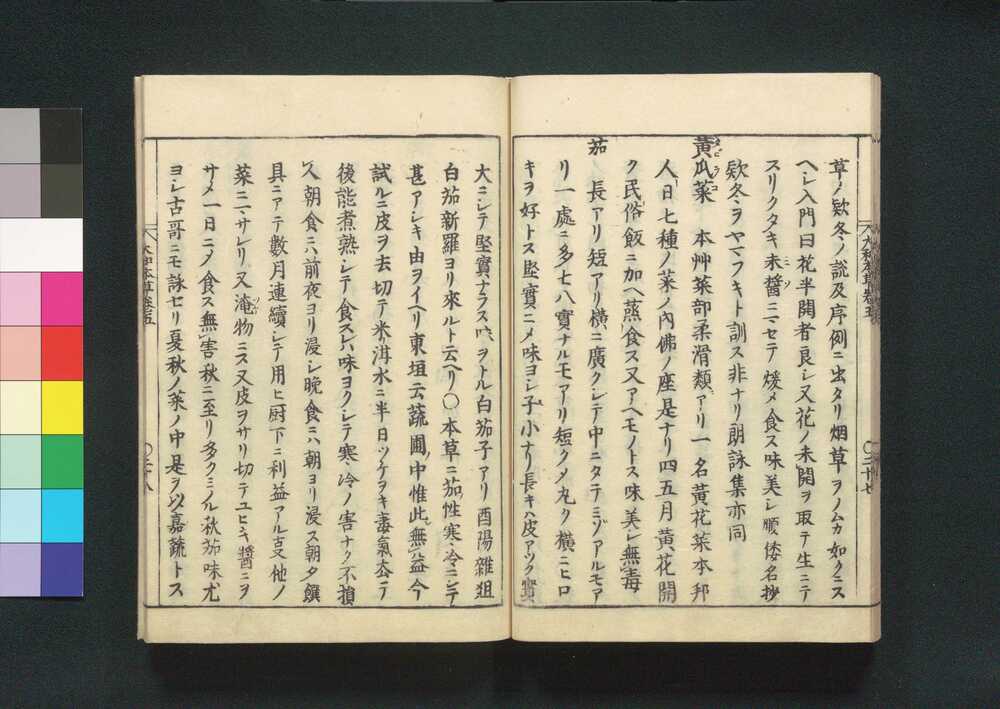 草ノ欵冬ノ說及序例ニ出タリ烟草ヲノムカ如クニス
ヘシ入門曰花半開者良シ又花ノ未開ヲ取テ生ニテ
スリクタキ未醬ニマセテ煖メ食ス味美シ順倭名抄
欵冬ヲヤマフキト訓ス非ナリ朗詠集亦同
黃瓜菜 本艸菜部柔滑類アリ一名黃花菜本邦
人日七種ノ菜ノ內佛ノ座是ナリ四五月黃花開
ク民俗飯ニ加ヘ蒸食ス又アヘモノトス味美シ無毒
茄 長アリ短アリ橫ニ廣クシテ中ニタテミゾアルモア
リ一處ニ多七八實ナルモアリ短クメ丸ク橫ニヒロ
キヲ好トス堅實ニメ味ヨシ子小ナリ長キハ皮アツク實
大和本草卷五
〇二十七
大ニシテ堅實ナラス吹ヲトル白茄子アリ酉陽雜俎
白茄新羅ヨリ來ルト云ヘリ〇本草ニ茄性寒冷ニシテ
甚アシキ由ヲイヘリ東垣云蔬圃中惟此無益今
試ルニ皮ヲ去切テ米泔水ニ半日ツケヲキ毒氣去テ
後能煮熟シテ食スレハ味ヨクシテ寒冷ノ害ナク不損
人朝食ニハ前夜ヨリ浸シ晚食ニハ朝ヨリ浸ス朝夕饌
具ニアテ數月連續シテ用ヒ厨下ニ利益アル支他ノ
菜ニマサレリ又淹物ニス又皮ヲサリ切テユビキ醬ニヲ
サメ一日ニメ食ス無害秋ニ至リ多クミノル秋茄味尤
ヨシ古哥ニモ詠セリ夏秋ノ菜ノ中是ヲ以嘉蔬トス
大和本草卷五
〇二十八